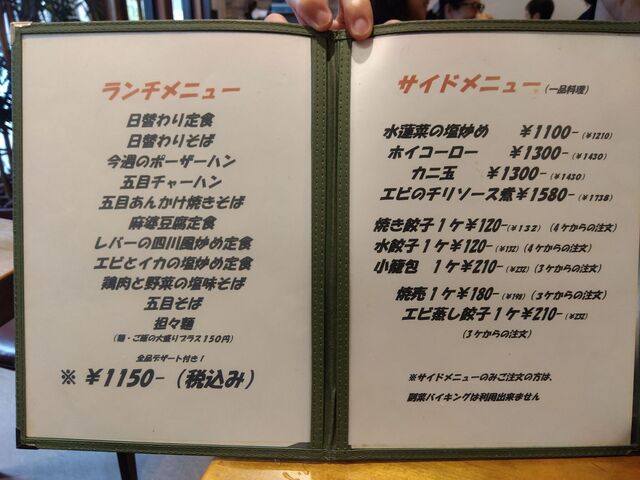 ランチメニュー
日替わり定食
日替わりそば
今週のポーザーハン
五目チャーハン
五目あんかけ焼きそば
麻婆豆腐定食
レバーの四川風炒め定食
エビとイカの塩炒め定食
鶏肉と野菜の塩味そば
五目そば
担々麺
(麺・ご飯の大盛りプラス150円)
全品デザート付き！
※ ¥1150-(税込み)
サイドメニュー(一品料理)
水蓮菜の塩炒め ¥1100-(¥1210)
ホイコーロー ¥1300-(¥1430)
カニ玉 ¥1300-(¥1430)
エビのチリソース煮¥1580-(¥1738)
焼き餃子1ケ¥120-(¥132)(4ケからの注文)
水餃子1ケ¥120-(¥132)(4ケからの注文)
小籠包 1ケ¥210-(¥232)(3ケからの注文)
焼売1ケ¥180-(¥198)(3ケからの注文)
エビ蒸し餃子1ケ¥210-(¥232)
(3ケからの注文)
※サイドメニューのみご注文の方は、
副菜バイキングは利用出来ません